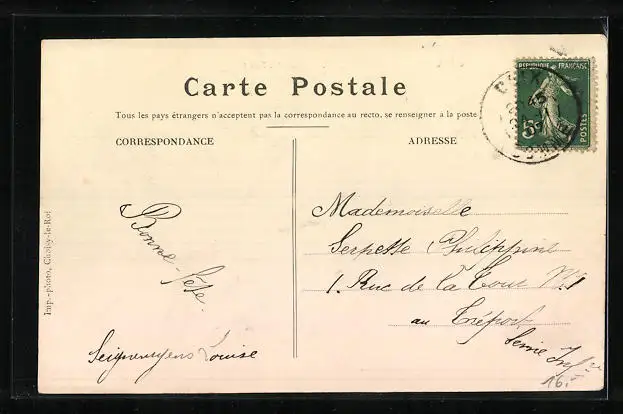 Carte Postale
Tous les pays étrangers n'acceptent pas la correspondance au recto, se renseigner à la poste
CORRESPONDANCE
ADRESSE
REPUBLIQUE FRANÇAISE
5c
POSTES
Bonne-fête.
Louise
Mademoiselle
Serpette Philippine
1. Rue de la Tour Nº1
au Tréport
Seine Inf
16.-
Imp.-photo, Choisy-le-Roi